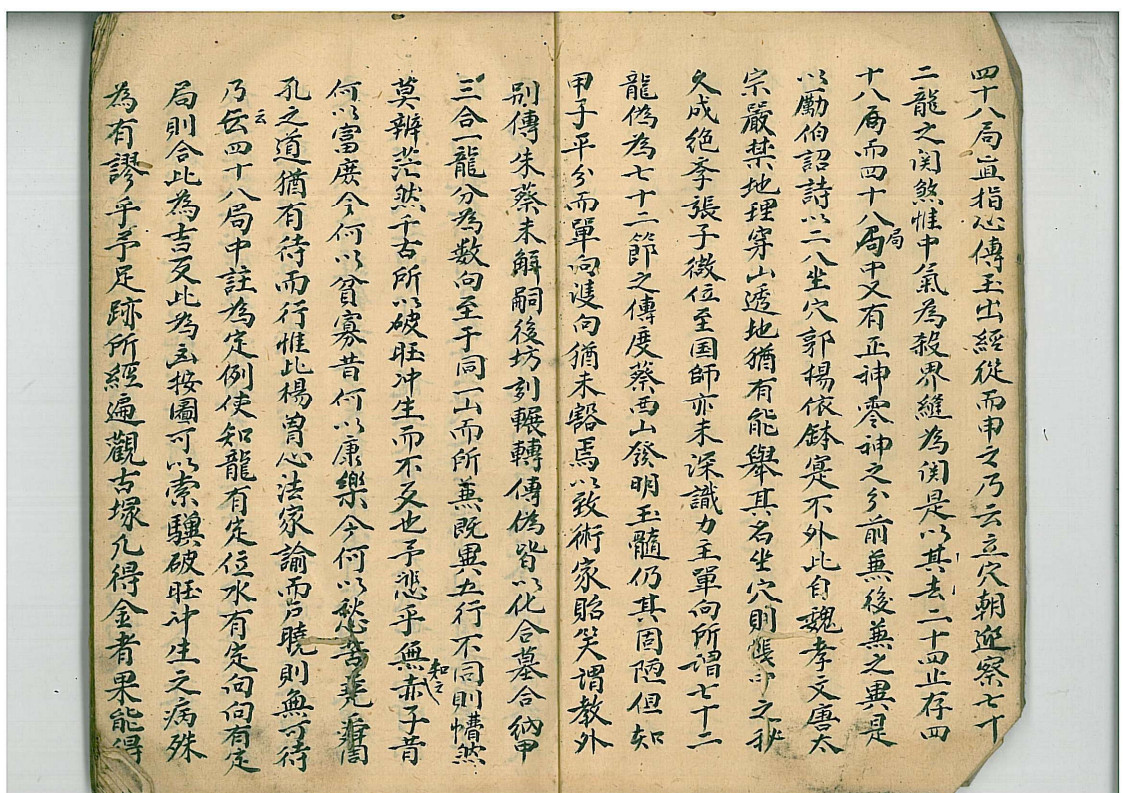 四十八局直指心傳玉出經從而申之乃云立穴朝迎察七十
二龍之関煞惟中氣為殺界縫為関是以其去二十四止存四
十八局而四十八局中又有正神零神之分前兼後兼之異是
以勵伯詔詩以二八坐穴郭楊依鉢寔不外此自魏孝文唐太
宗嚴禁地理穿山透地猶有能舉其名坐穴則之秘
久成絶李張子微位至国師亦未深識力主單向所謂七十二
龍偽為七十二節之傳度蔡西山發明玉髓仍其固陋但知
甲子平分而單向雙向猶未豁焉以致術家貽笑謂教外
别傳朱蔡未解嗣後坊刻輾轉傳偽皆以化合墓合納甲
三合一龍分為数向至于同一山而所兼既異五行不同則懵然
莫辨茫然千古所以破旺冲生而不反也予悲乎無知之赤子昔
何以富庶今何以貧寡昔何以康樂今何以愁苦堯周
孔之道猶有待而行惟此楊曽心法家諭而户曉則無可待
乃云四十八局中註為定例使知龍有定位水有定向向有定
局則合此為吉反此為凶按圖可以索驥破旺冲生之病殊
為有謬乎予足跡所經遍觀古塚凡得金者果能得